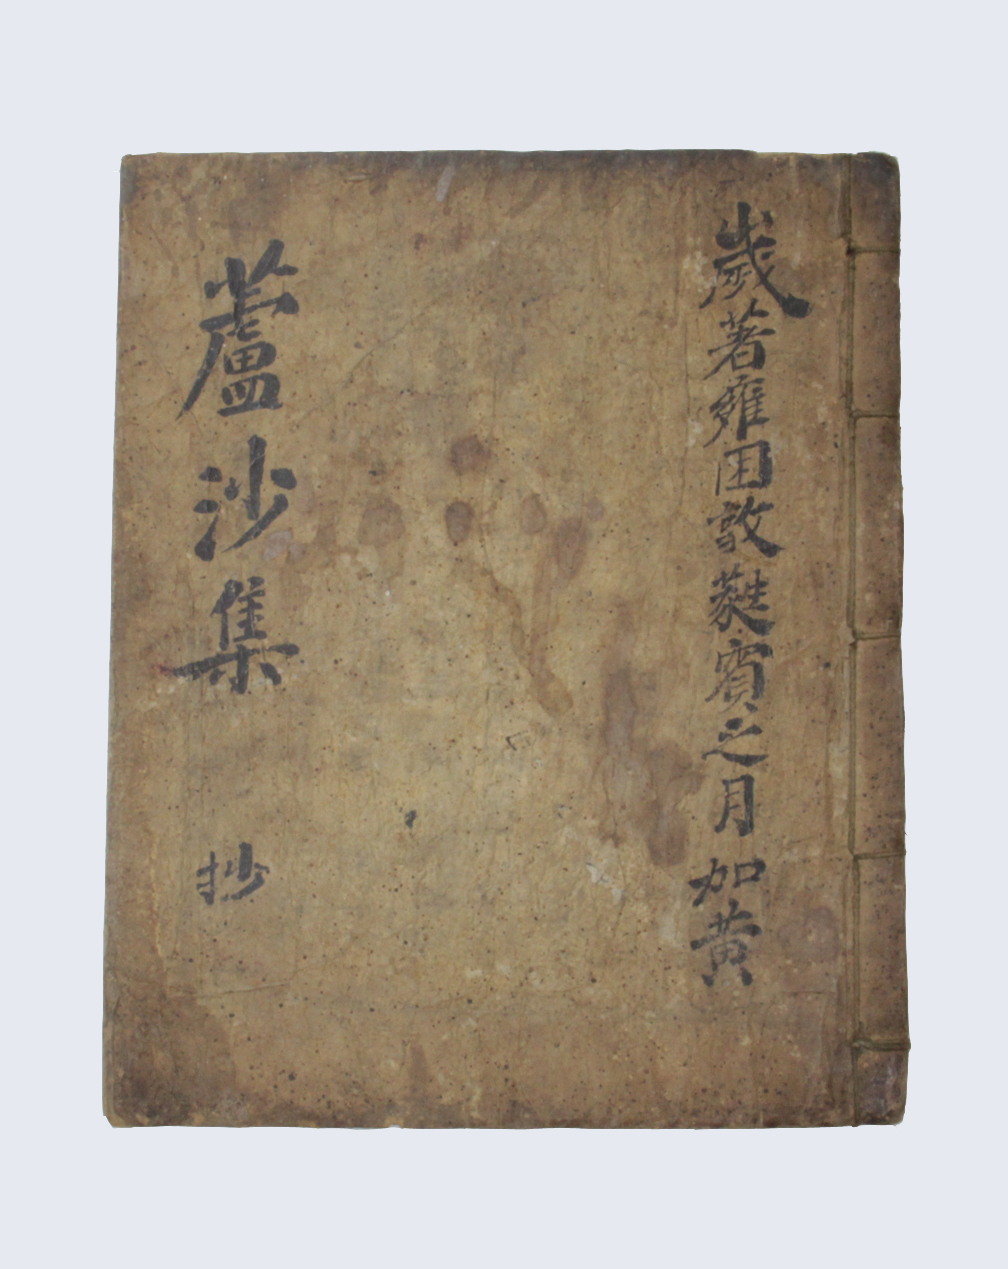 歲著雍困敦蕤賓之月 加黃
蘆沙集 抄